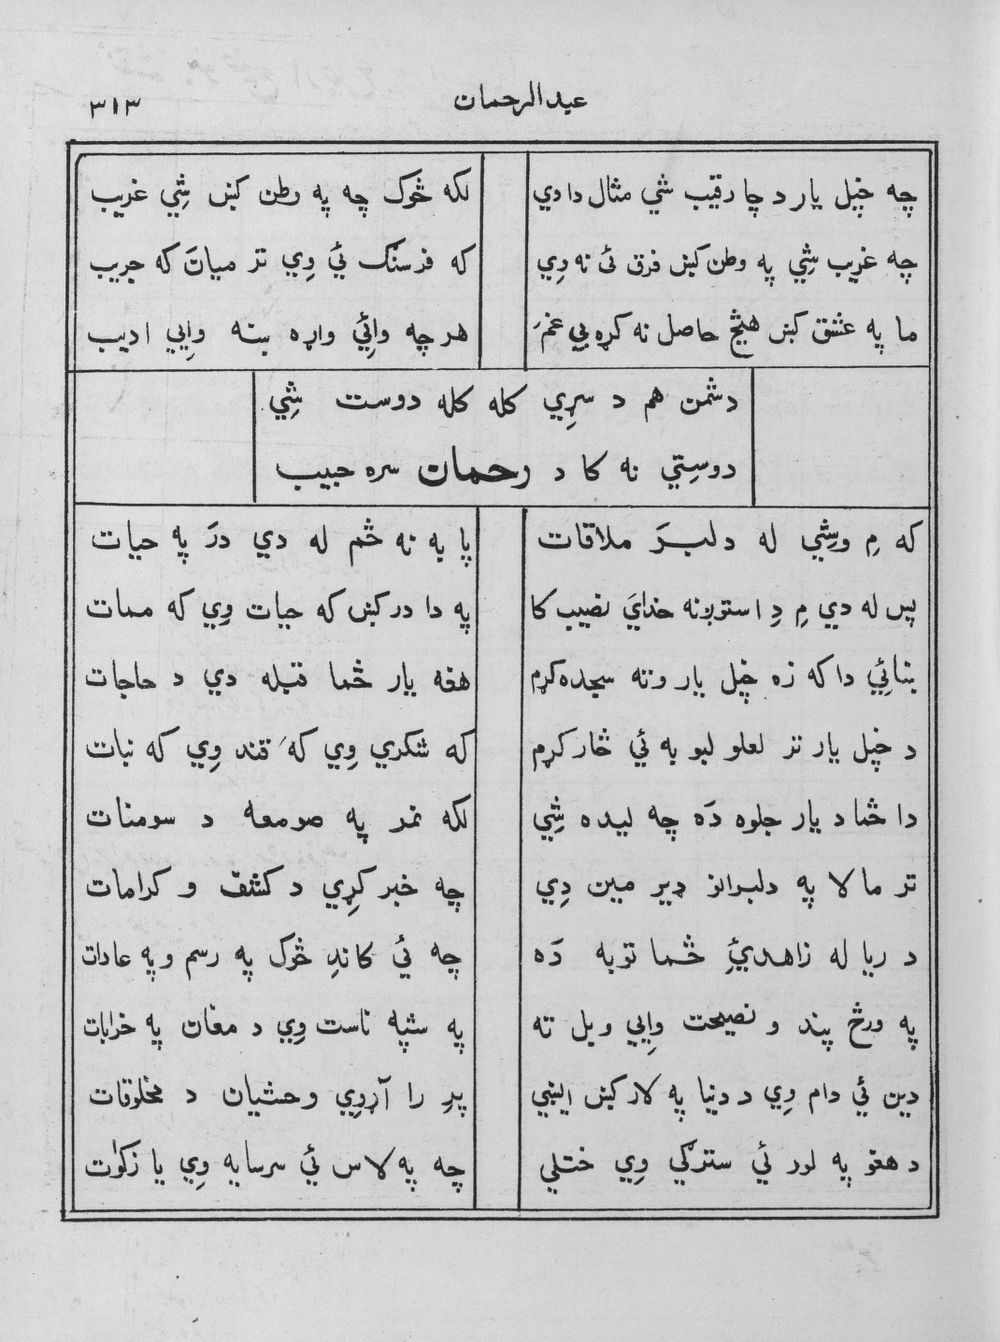 عبدالرحمان ۳۱۳
چه خپل یار د چا رقیب شي مثال دا دي لکه څوک چه په وطن کښ شِي غریب
چه غریب شِي په وطن کښ فرق ئی نه وِي که فرسنګ ئي وِي تر میانَ که جریب
ما په عشق کښ هیڅ حاصل نه کړه بې غمَ هر چه وائي واړه ښه وایي ادیب
دشمن هم د سړِي کله کله دوست شِي
دوستِي نه کا د رحمان سره حبیب
که مِ وشِي له دلبرَ ملاقات پا به نه څم له دي درَ په حیات
پس له دي مِ دِ استوګنه خدایَ نصیب کا په دا در کښ که حیات وِي که ممات
ښائِي دا که زه خپل یار وته سجده کړم هغه یار څما قبله دي د حاجات
د خپل یار تر لعلو لبو به ئي څار کړم که شکري وِي کهَ قند وِي که نبات
دا څما د یار جلوه دَه چه لیده شِي لکه نمر په صومعه د سومنات
تر ما لا په دلبرانو ډیر مین دِي چه خبر کړِي د کشف و کرامات
د ریا له زاهدیِٔ څما توبه دَه چه ئي کاندِ څوک په رسم و په عادات
په ورځ پند و نصیحت وایي ویل ته په شپه ناست وِي د مغان په خرابات
دین ئي دام وِي د دنیا په لار کښ ایښي پرِ را آړوِي وحشیان د مخلوقات
د هغو په لور ئي سترګي وِي ختلي چه په لاس ئي سرسایه وِي یا زکوٰت